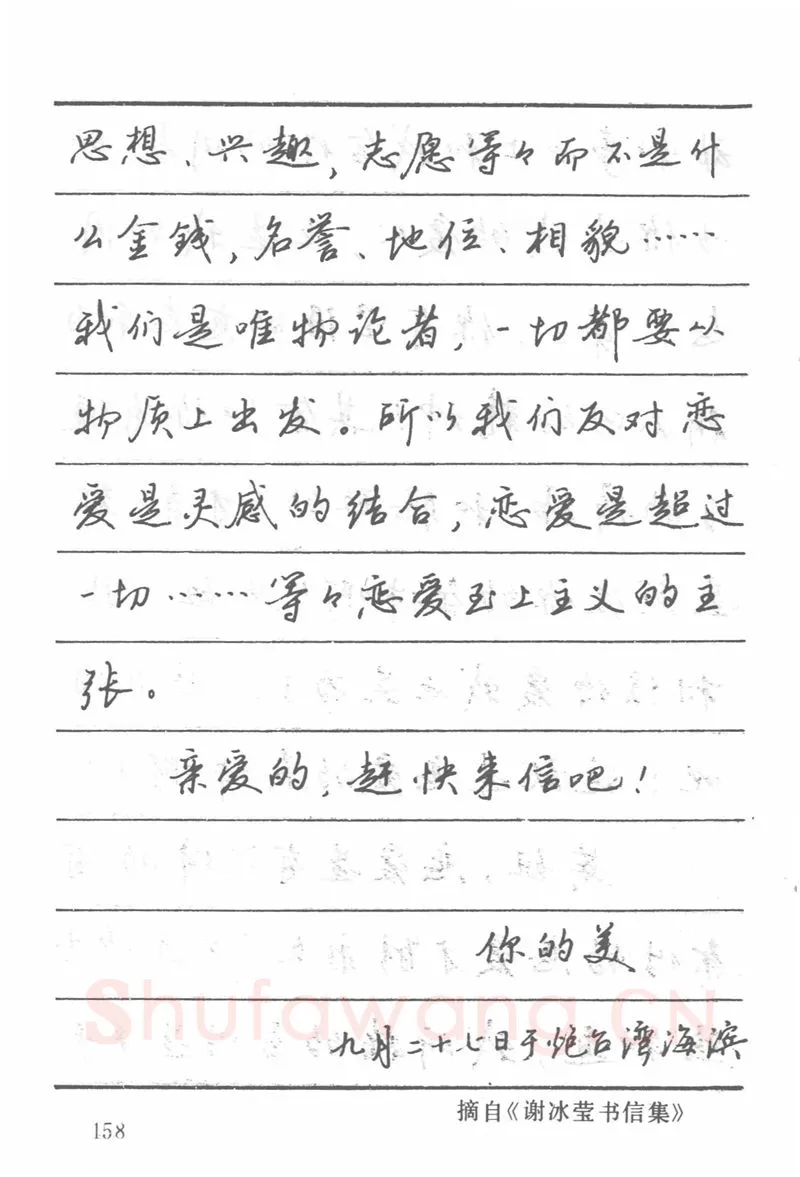 思想、兴趣,志愿等々而不是什
么金钱,名誉、地位、相貌……
我们是唯物论者,一切都要从
物质上出发。所以我们反对恋
爱是灵感的结合,恋爱是超过
一切……等々恋爱至上主义的主
张。
亲爱的,赶快来信吧!
你的美
九月二十七日于炮台湾海滨
摘自《谢冰莹书信集》
158
Shufawang.CN